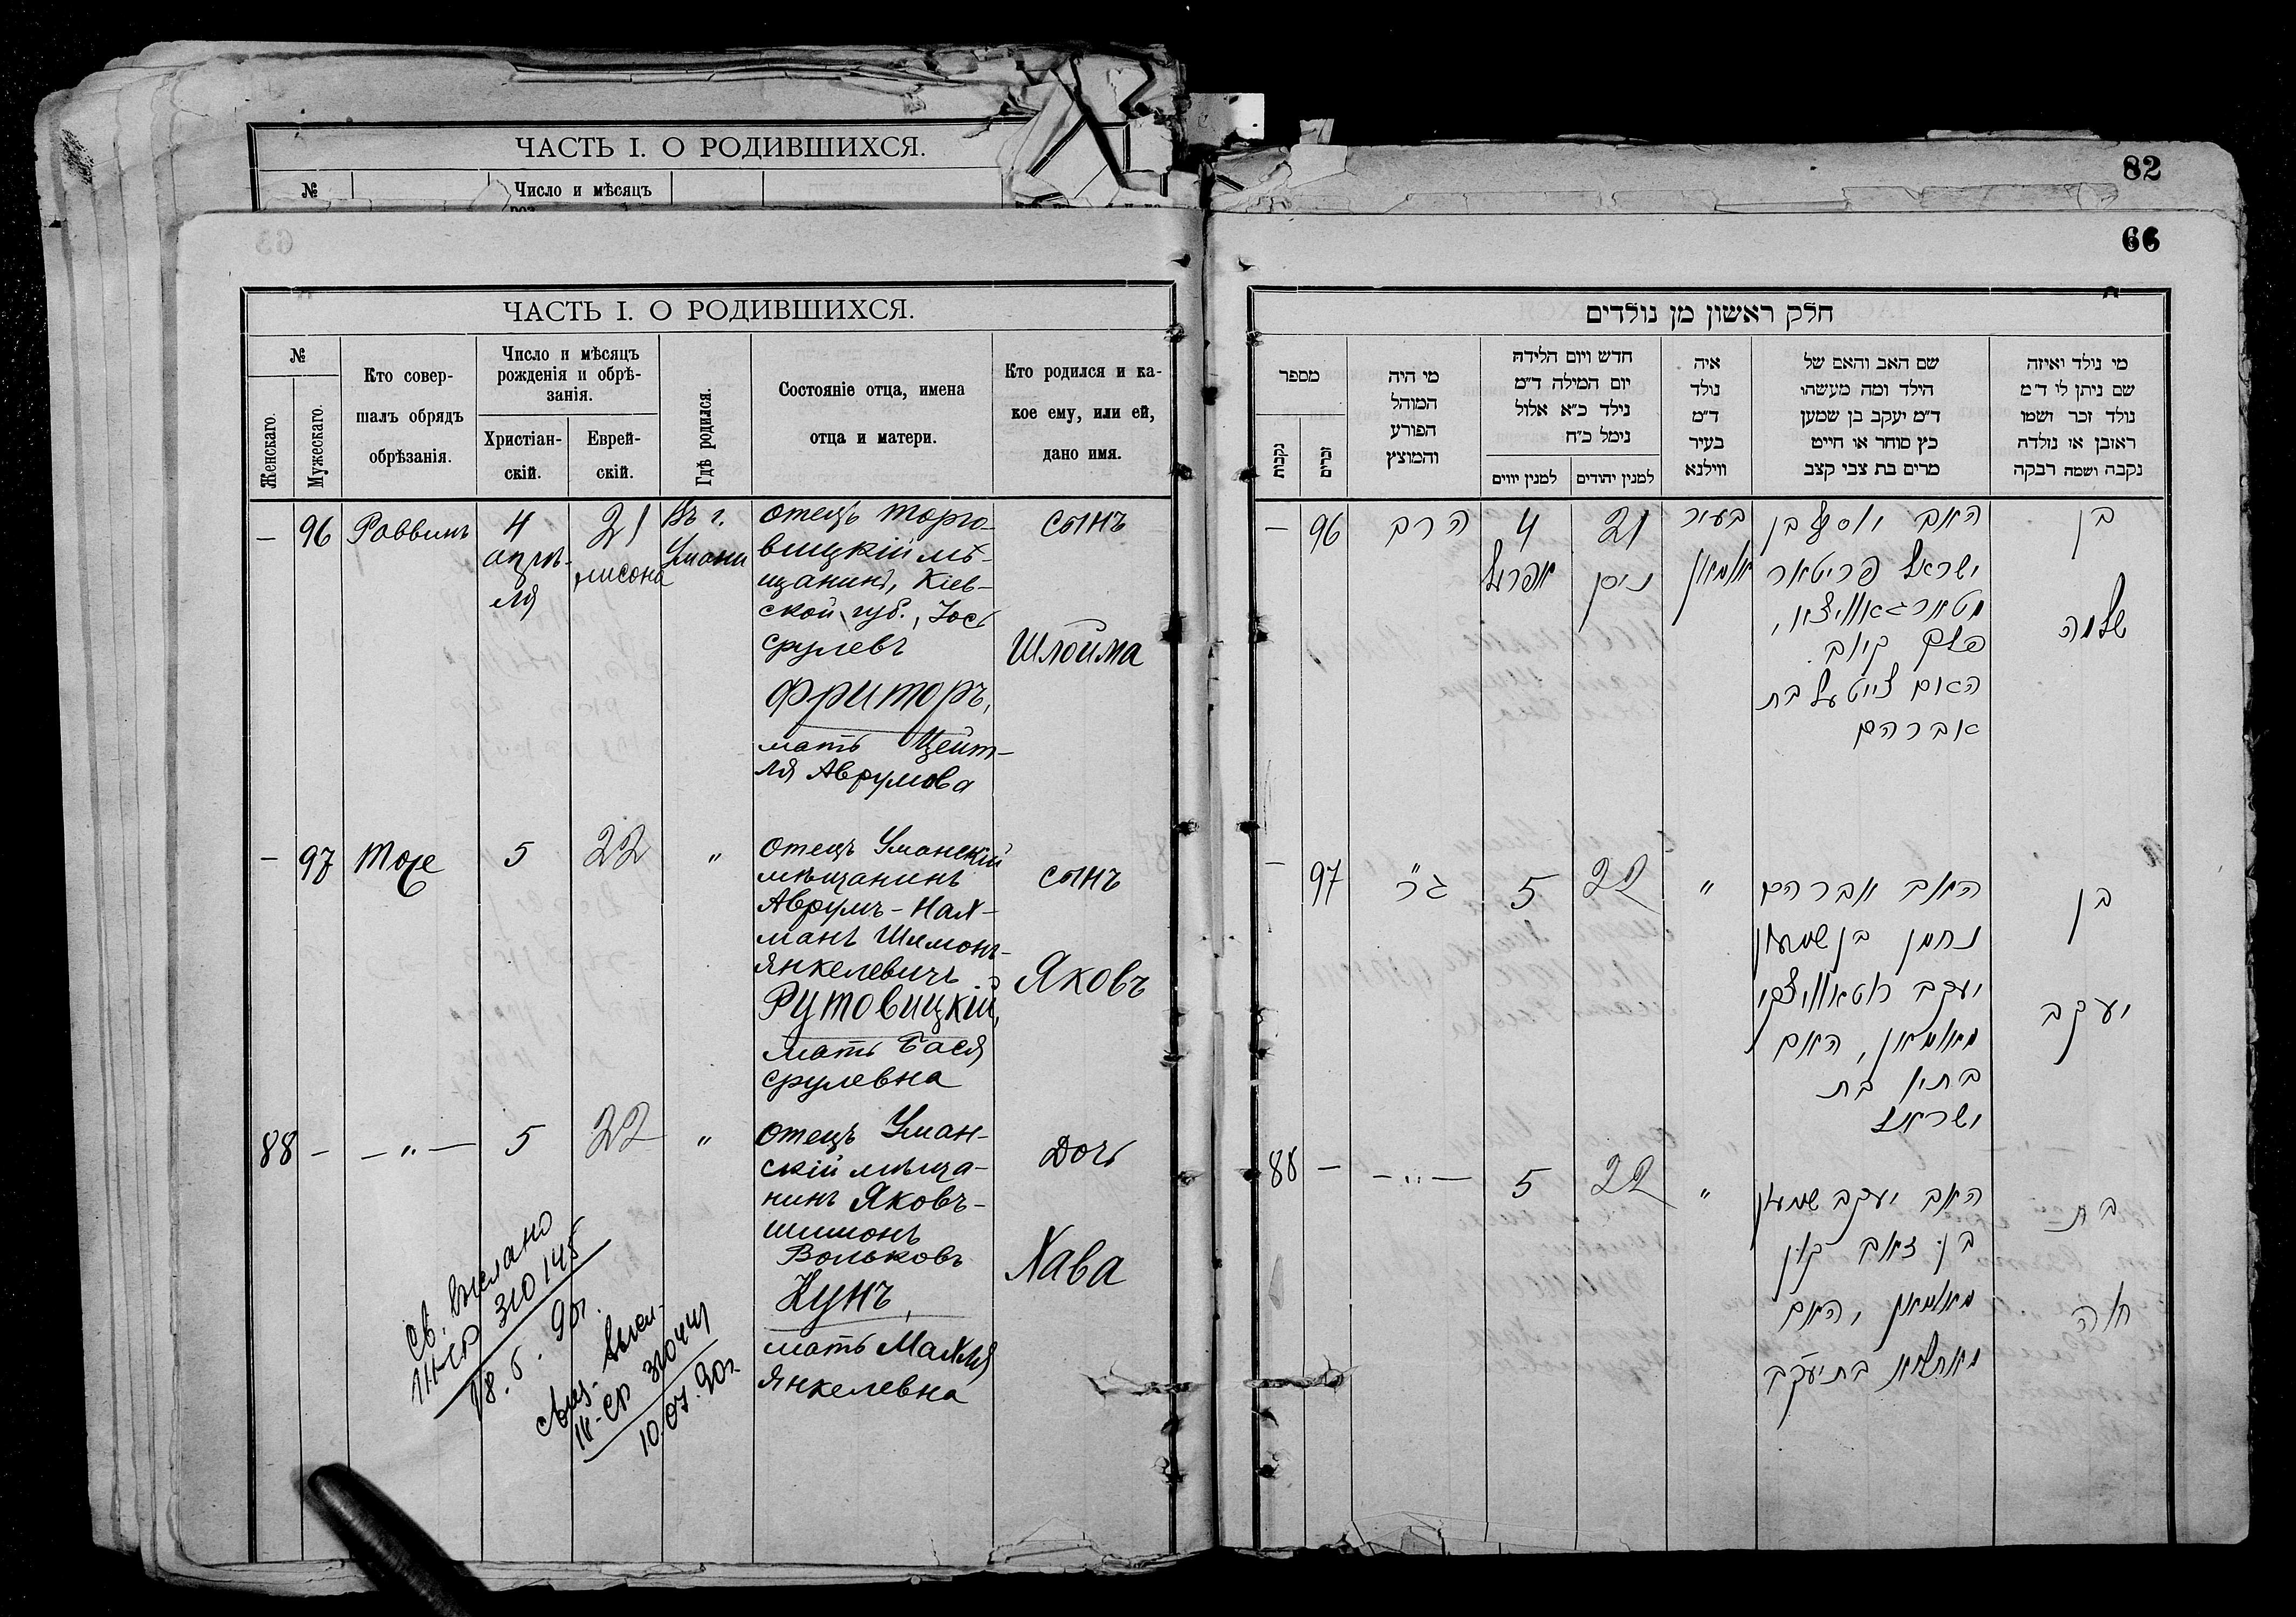 ЧАСТЬ I. О РОДИВШИХСЯ.
№
Число и мѣсяцъ
82
66
63
ЧАСТЬ I. О РОДИВШИХСЯ.
№
Женскаго.
Мужескаго.
Кто совер-
шалъ обрядъ
обрѣзанія.
Число и мѣсяцъ
рожденія и обрѣ-
занія.
Христіан-
скій.
Еврей-
скій.
Гдѣ родился.
Состояніе отца, имена
отца и матери.
Кто родился и ка-
кое ему, или ей,
дано имя.
— 96 Раввинъ
4
апрѣ-
ля
21
нисона
Въ г.
Умани
отецъ торго-
вицкій мѣ-
щанинъ, Кіев-
ской губ., Іось
Срулевъ
Фриторъ,
мать Цейт-
ля Аврумова
сынъ
Шлойма
— 97 Тоже 5 22 „
отецъ Уманскій
мѣщанинъ
Аврумъ-Нах-
манъ Шимонъ-
Янкелевичъ
Рутовицкій,
мать Бася
Срулевна
сынъ
Яковъ
88 — — „ — 5 22 „
отецъ Уман-
скій мѣща-
нинъ Яковъ-
Шимонъ
Вольковъ
Кунъ,
мать Махля
Янкелевна
Дочь
Хава
св. выслано
III-СР 310145
18.5.90г.
выcл.
III-СР 310441
10.07.90г.
חלק ראשון מן נולדים
מספר
נקבות
זכרים
מי היה
המוהל
הפורע
והמוצץ
חדש ויום הלידה
יום המילה ד״מ
נילד כ״א אלול
נימל כ״ח
למנין יווים
למנין יהודים
איה
נולד
ד״מ
בעיר
ווילנא
שם האב והאם של
הילד ומה מעשהו
ד״מ יעקב בן שמען
כץ סוחר או חייט
מרים בת צבי קצב
מי נולד ואיזה
שם ניתן לו ד״מ
נולד זכר ושמו
ראובן או נולדה
נקבה ושמה רבקה
— 96 הרב
4
אפריל
21
ניסן
בעיר
אומאן
האב יוסף בן
ישראל פריטאר
מטארגאוויצא,
פלך קיוב
האם צייטעל בת
אברהם
בן
שלמה
— 97 ג״כ 5 22 „
האב אברהם
נחמן בן שמעון
יעקב רוטאוויצקי
מאומאן, האם
בתיא בת
ישראל
בן
יעקב
88 — — „ — 5 22 „
האב יעקב שמעון
בן זאב קון
מאומאן, האם
מאחליא בת יעקב
בת
חוה